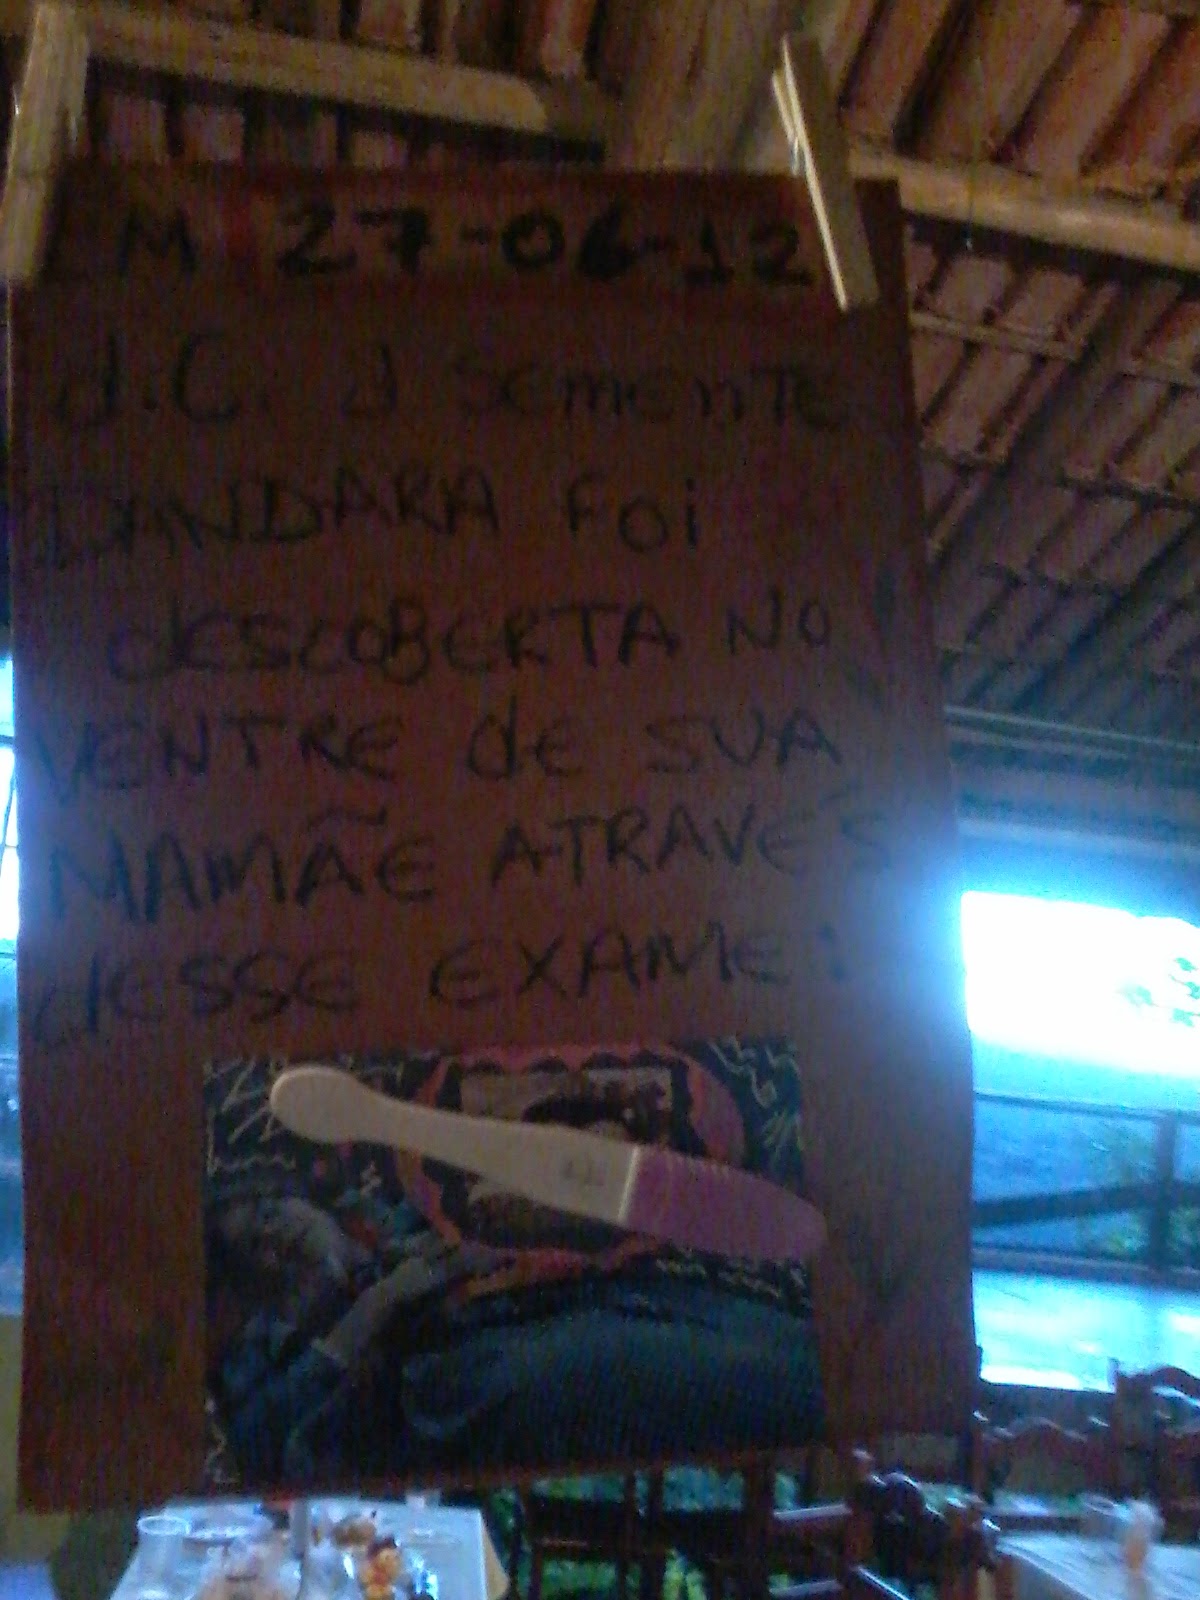 EM 27-06-12
J.C. A SEMENTE
DANDARA FOI
DESCOBERTA NO
VENTRE DE SUA
MAMÃE ATRAVÉS
DESSE EXAME: